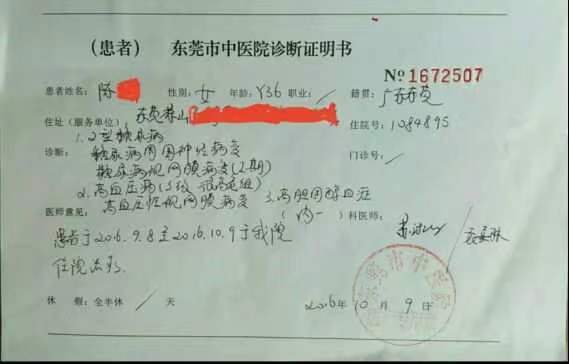 （患者） 东莞市中医院诊断证明书
№ 1672507
患者姓名： 陈 性别： 女 年龄： Y36 职业： / 籍贯： 广东东莞
住址（服务单位）： 东莞茶山 住院号： 1084895
诊断： 1.2型糖尿病 门诊号： /
糖尿病周围神经病变
糖尿病视网膜病变(2期)
2.高血压病(3级 很高危组) 3.高胆固醇血症
高血压性视网膜病变
医师意见： （内一）科医师：
患者于2016.9.8至2016.10.9于我院
住院
休假：全半休 / 天 2016年10月9日
东莞市中医院